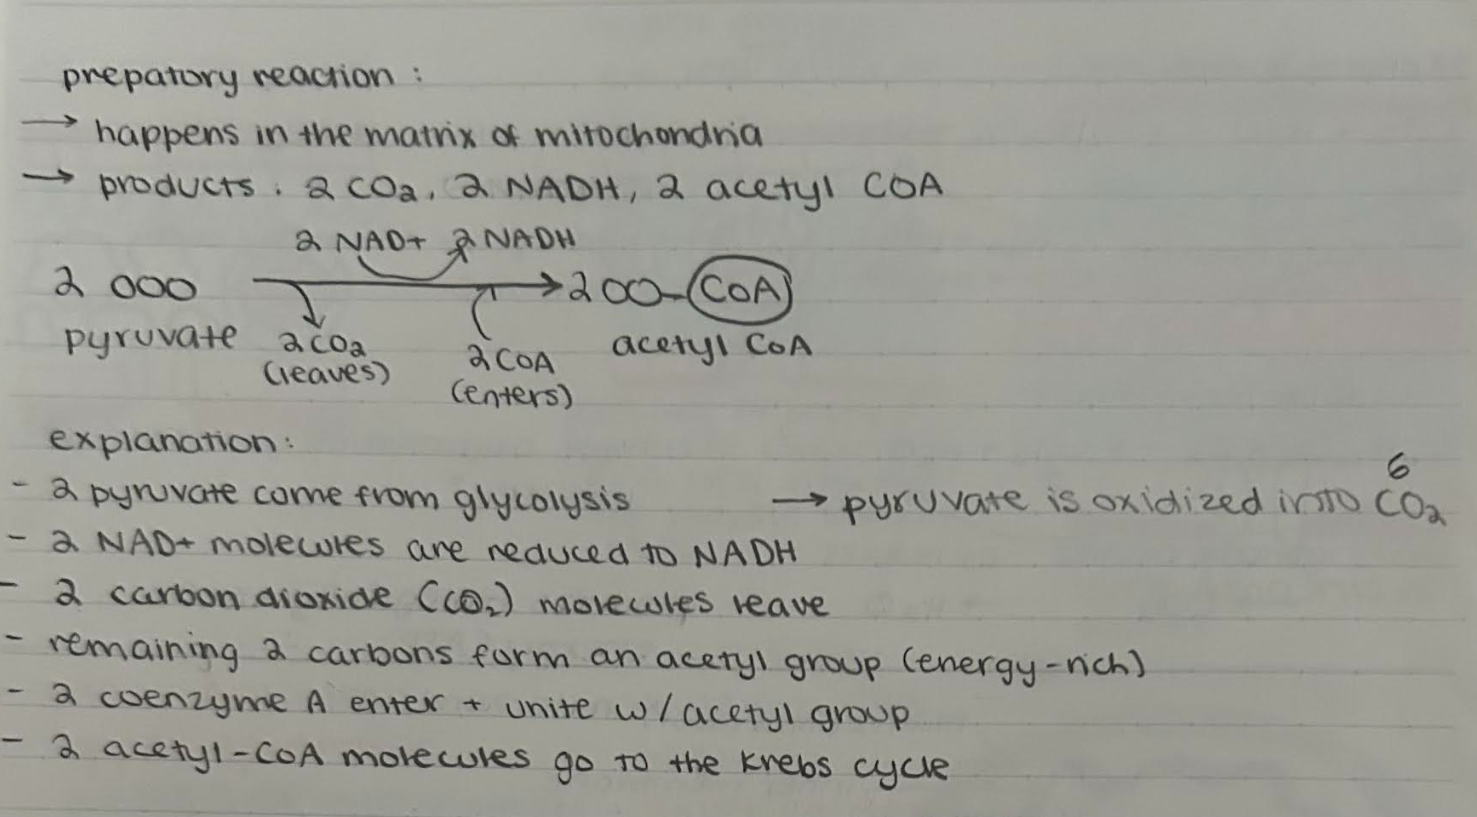 prepatory reaction :
→ happens in the matrix of mitochondria
→ products : 2 CO2, 2 NADH, 2 acetyl COA
2 NAD+ 2 NADH
2 000 → 2 00-CoA
pyruvate 2CO2 2COA acetyl CoA
(leaves) (enters)
explanation:
- 2 pyruvate come from glycolysis → pyruvate is oxidized into 6 CO2
- 2 NAD+ molecules are reduced to NADH
- 2 carbon dioxide (CO2) molecules leave
- remaining 2 carbons form an acetyl group (energy-rich)
- 2 coenzyme A enter + unite w/ acetyl group
- 2 acetyl-CoA molecules go to the Krebs cycle